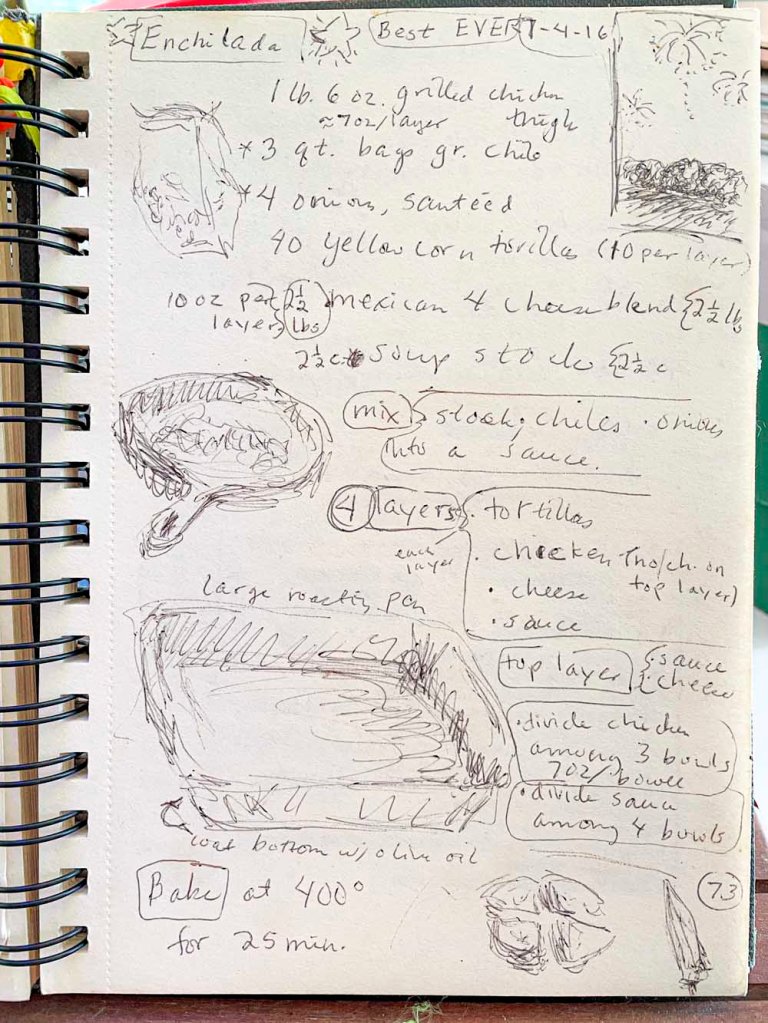 Enchilada Best EVER 7-4-16
1 lb. 6 oz. grilled chicken
≈7oz/layer thigh
* 3 qt. bags gr. chile
* 4 onions, sautéed
40 yellow corn tortillas (10 per layer)
10 oz per layer, 2½ lbs mexican 4 cheese blend {2½ lbs
2½c soup stock {2½ c
mix stock, chiles · onions
into a sauce.
4 layers · tortillas
each layer
· chicken (no/ch. on top layer)
· cheese
· sauce
large roasting pan
top layer {· sauce
{· cheese
· divide chicken
among 3 bowls
7oz/bowl
· divide sauce
among 4 bowls
coat bottom w/olive oil
Bake at 400°
for 25 min.
73